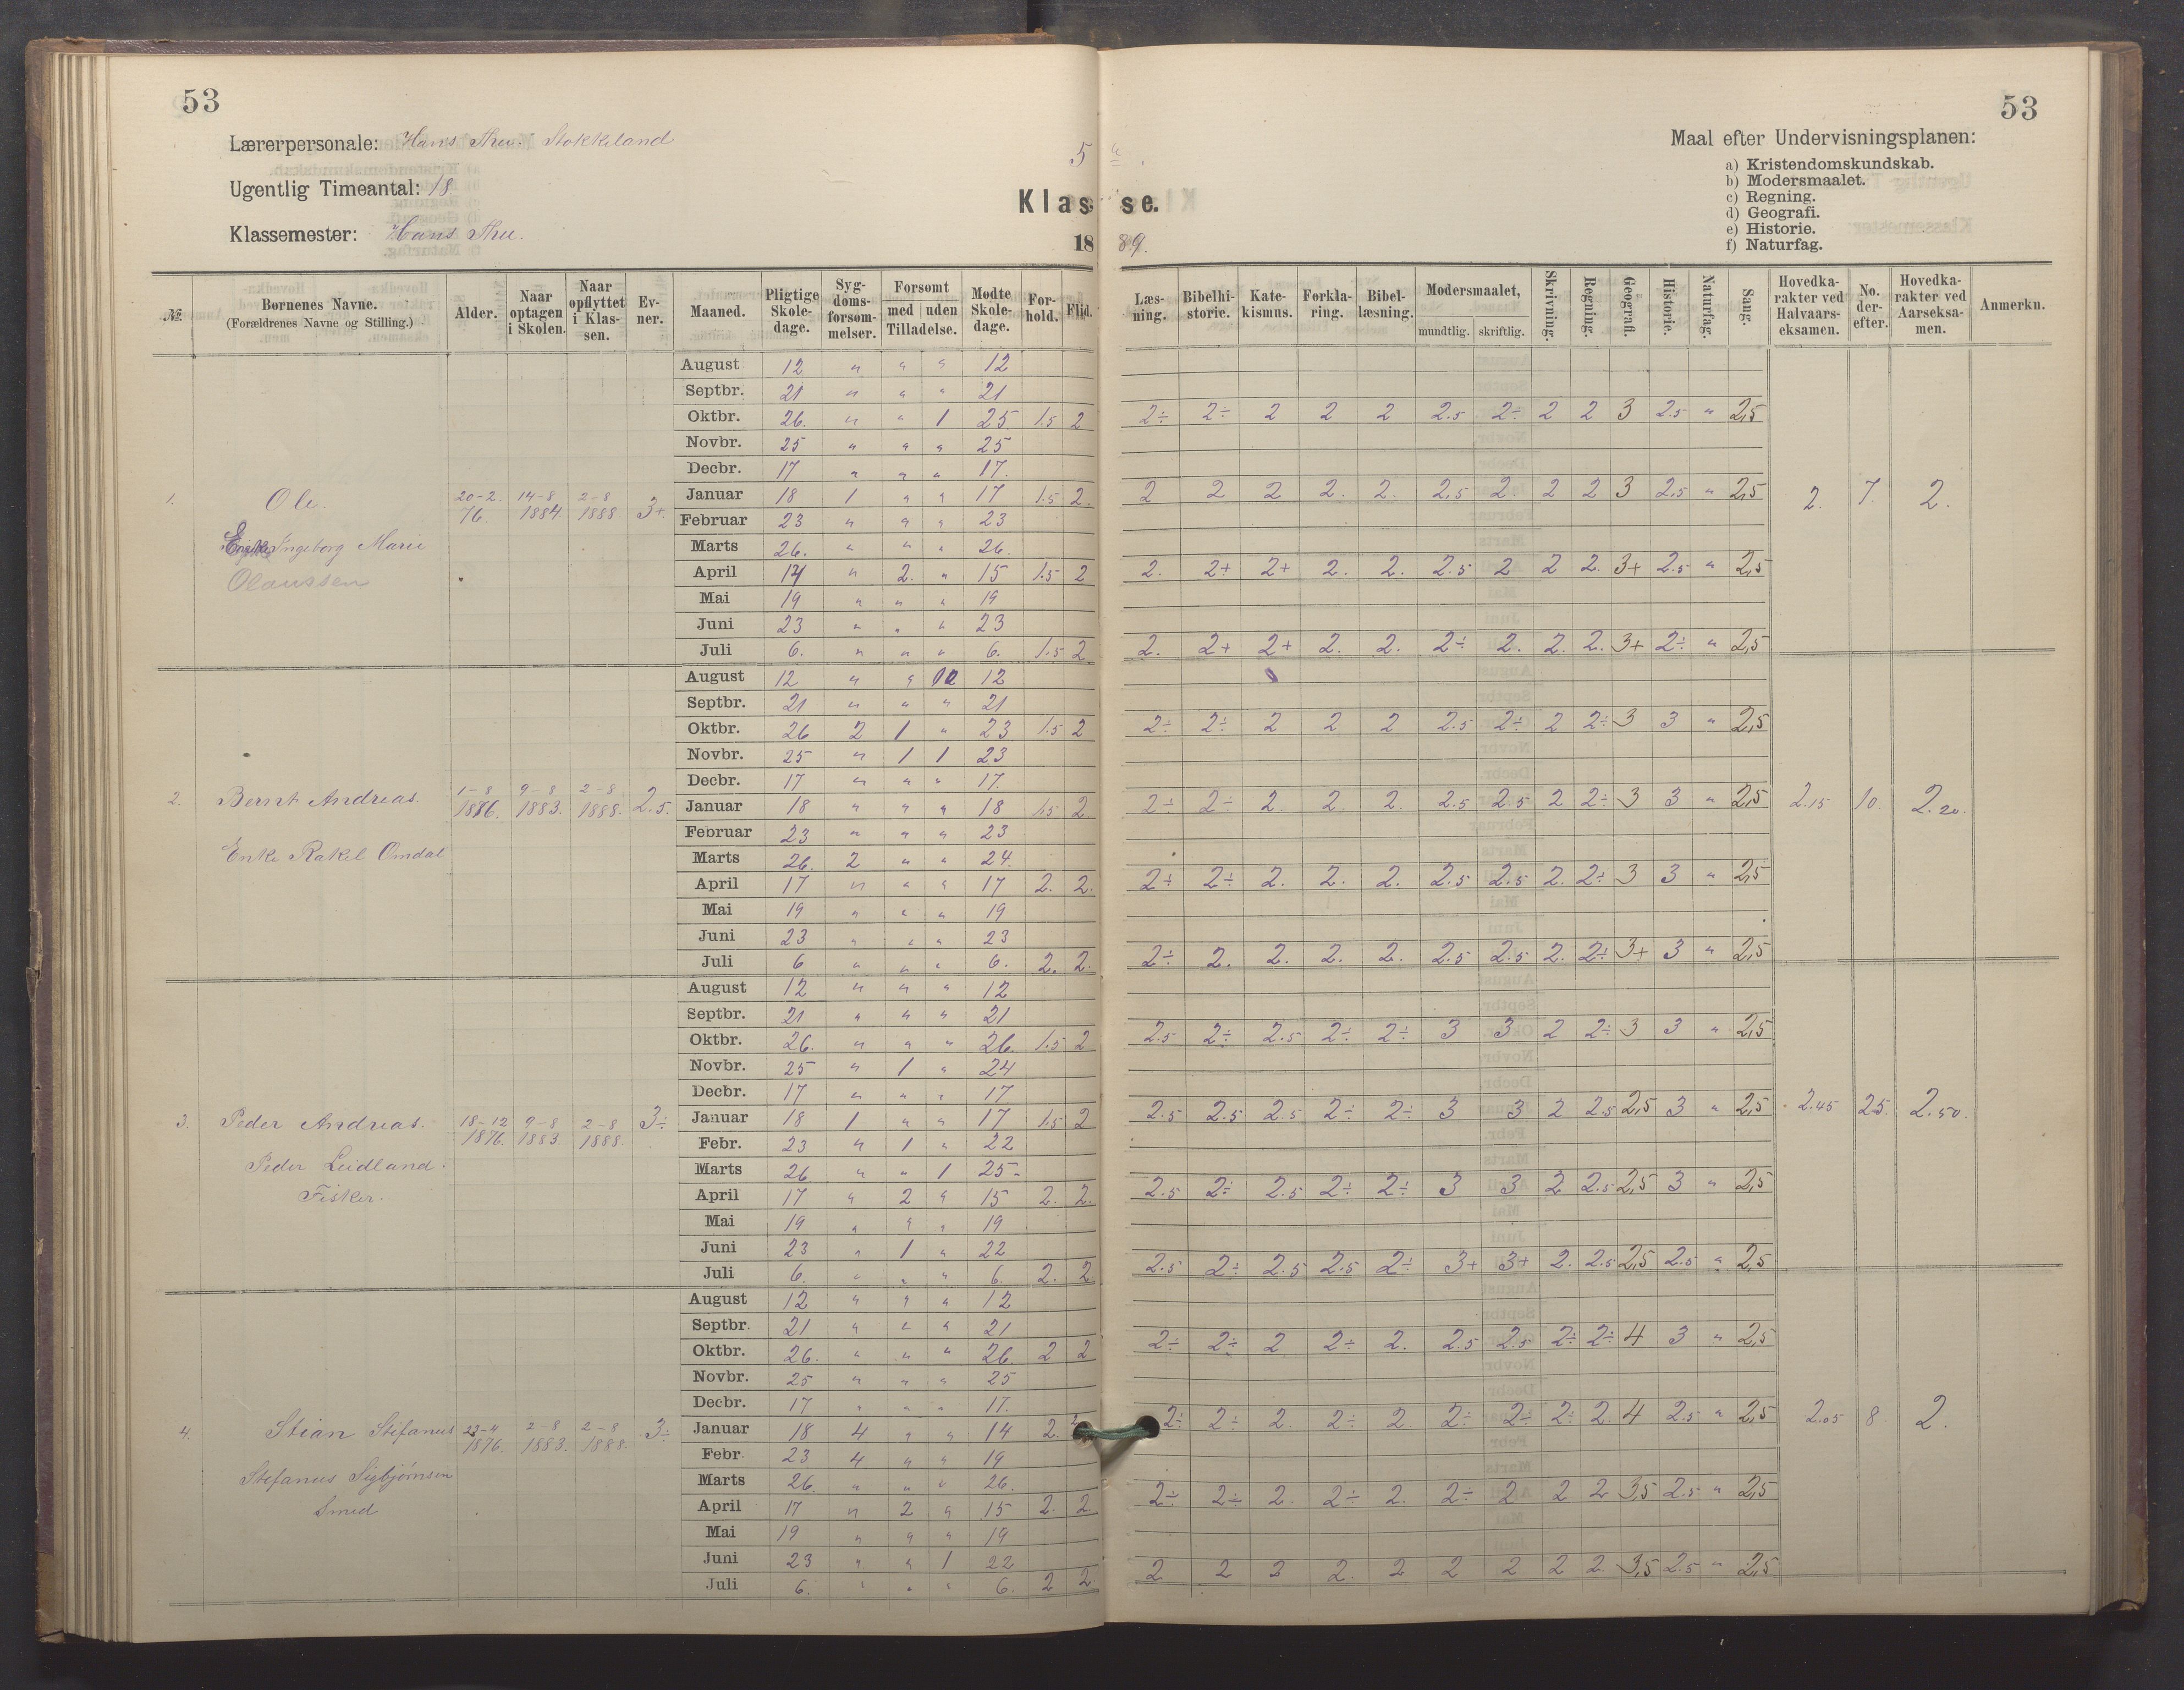 53
53
Lærerpersonale: Hans Thu. Stokkeland
Ugentlig Timeantal: 18
Klassemester: Hans Thu.
5
Klasse.
1889.
Maal efter Undervisningsplanen:
a) Kristendomskundskab.
b) Modersmaalet.
c) Regning.
d) Geografi.
e) Historie.
f) Naturfag.
№ Børnenes Navne. (Forældrenes Navne og Stilling.) Alder. Naar optagen i Skolen. Naar opflyttet i Klassen. Evner. Maaned. Pligtige Skoledage. Sygdomsforsømmelser. Forsømt med | uden Tilladelse. Mødte Skoledage. Forhold. Flid. Læsning. Bibelhistorie. Katekismus. Forklaring. Bibellæsning. Modersmaalet, mundtlig. skriftlig. Skrivning. Regning. Geografi. Historie. Naturfag. Sang. Hovedkarakter ved Halvaarseksamen. No. derefter. Hovedkarakter ved Aarseksamen. Anmerkn.
1. Ole. 20-2. 76. 14-8 1884 2-8 1888. 3+. 2. 7. 2.
Ingeborg Marie
Olaussen
August 12 " " " 12
Septbr. 21 " " " 21
Oktbr. 26. " " 1 25 1.5 2 2÷ 2÷ 2 2 2 2.5 2÷ 2 2 3 2.5 " 2,5
Novbr. 25 " " " 25
Decbr. 17 " " " 17.
Januar 18 1 " " 17 1.5 2. 2 2 2 2. 2. 2.5 2. 2 2 3 2.5 " 2,5
Februar 23 " " " 23
Marts 26. " " " 26.
April 17 " 2. " 15 1.5 2 2. 2+ 2+ 2. 2. 2.5 2 2 2. 3+ 2.5 " 2,5
Mai 19 " " " 19
Juni 23 " " " 23
Juli 6. " " " 6. 1.5 2 2. 2+ 2+ 2. 2. 2÷ 2. 2. 2. 3+ 2÷ " 2,5
2. Bernt Andreas. 1-8 1876. 9-8 1883. 2-8 1888. 2.5. 2.15 10. 2.20.
Enke Rakel Omdal
August 12 " " 12
Septbr. 21 " " " 21
Oktbr. 26 2 1 " 23 1.5 2 2÷ 2÷ 2 2 2 2.5 2÷ 2 2÷ 3 3 " 2,5
Novbr. 25 " 1 1 23
Decbr. 17 " " " 17.
Januar 18 " " " 18 1.5 2. 2÷ 2÷ 2. 2. 2. 2.5 2.5 2 2÷ 3 3 " 2,5
Februar 23 " " " 23
Marts 26 2 " " 24.
April 17 " " " 17 2. 2. 2÷ 2÷ 2. 2. 2. 2.5 2.5 2. 2÷ 3 3 " 2,5
Mai 19 " " " 19
Juni 23 " " " 23
Juli 6 " " " 6. 2. 2. 2÷ 2. 2. 2. 2. 2.5 2.5 2. 2÷ 3+ 3 " 2,5
3. Peder Andreas. 18-12 1876. 9-8 1883. 2-8 1888. 3÷ 2.45 25. 2.50.
Peder Leidland.
Fisker.
August 12 " " " 12
Septbr. 21 " " " 21
Oktbr. 26. " " " 26. 1.5 2 2.5 2÷ 2.5 2÷ 2÷ 3 3 2 2÷ 3 3 " 2,5
Novbr. 25 " 1 " 24
Decbr. 17 " " " 17
Januar 18 1 " " 17 1.5 2 2.5 2.5 2.5 2÷ 2÷ 3 3 2 2.5 2,5 3 " 2,5
Febr. 23 " 1 " 22
Marts 26 " " 1 25
April 17 " 2 " 15 2. 2. 2.5 2÷ 2.5 2÷ 2÷ 3 3 2 2.5 2,5 3 " 2,5
Mai 19 " " " 19
Juni 23 " 1 " 22
Juli 6. " " " 6. 2. 2 2.5 2÷ 2.5 2.5 2÷ 3+ 3+ 2. 2.5 2,5 2.5 " 2,5
4. Stian Stefanus 23-4 1876. 2-8 1883. 2-8 1888. 3÷ 2.05 8 2.
Stefanus Sigbjørnsen
Smed
August 12 " " " 12
Septbr. 21 " " " 21
Oktbr. 26. " " " 26. 2 2 2÷ 2÷ 2 2÷ 2. 2.5 2.5 2÷ 2÷ 4 3 " 2,5
Novbr. 25 " " " 25
Decbr. 17 " " " 17.
Januar 18 4 " " 14 2. 2 2÷ 2÷ 2. 2÷ 2. 2÷ 2÷ 2÷ 2. 4 2.5 " 2,5
Febr. 23 4 " " 19
Marts 26. " " " 26.
April 17 " 2 " 15 2. 2. 2÷ 2÷ 2. 2÷ 2. 2÷ 2 2 2 3,5 2.5 " 2,5
Mai 19 " " " 19
Juni 23 " " 1 22
Juli 6. " " " 6. 2 2 2 2 2 2. 2 2 2 2 2. 3,5 2.5 " 2,5